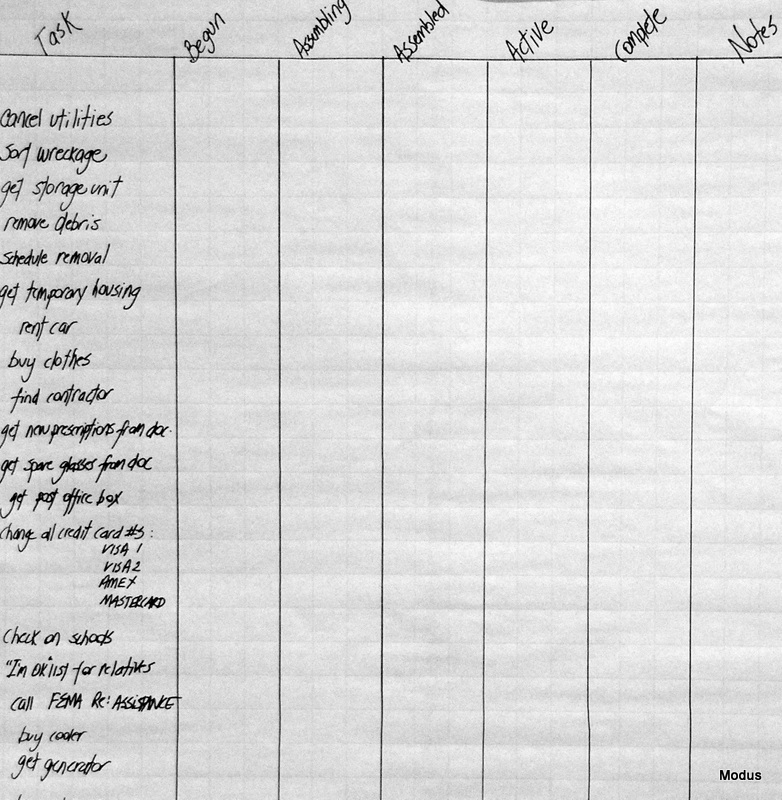 Task Begun Assembling Assembled Active Complete Notes
Cancel utilities
Sort wreckage
get storage unit
remove debris
schedule removal
get temporary housing
rent car
buy clothes
find contractor
get new prescriptions from doc.
get spare glasses from doc
get post office box
change all credit card #s:
VISA 1
VISA 2
AMEX
MASTERCARD
Check on schools
"I'm OK" list for relatives
call FEMA Re: ASSISTANCE
buy cooler
get generator
Modus